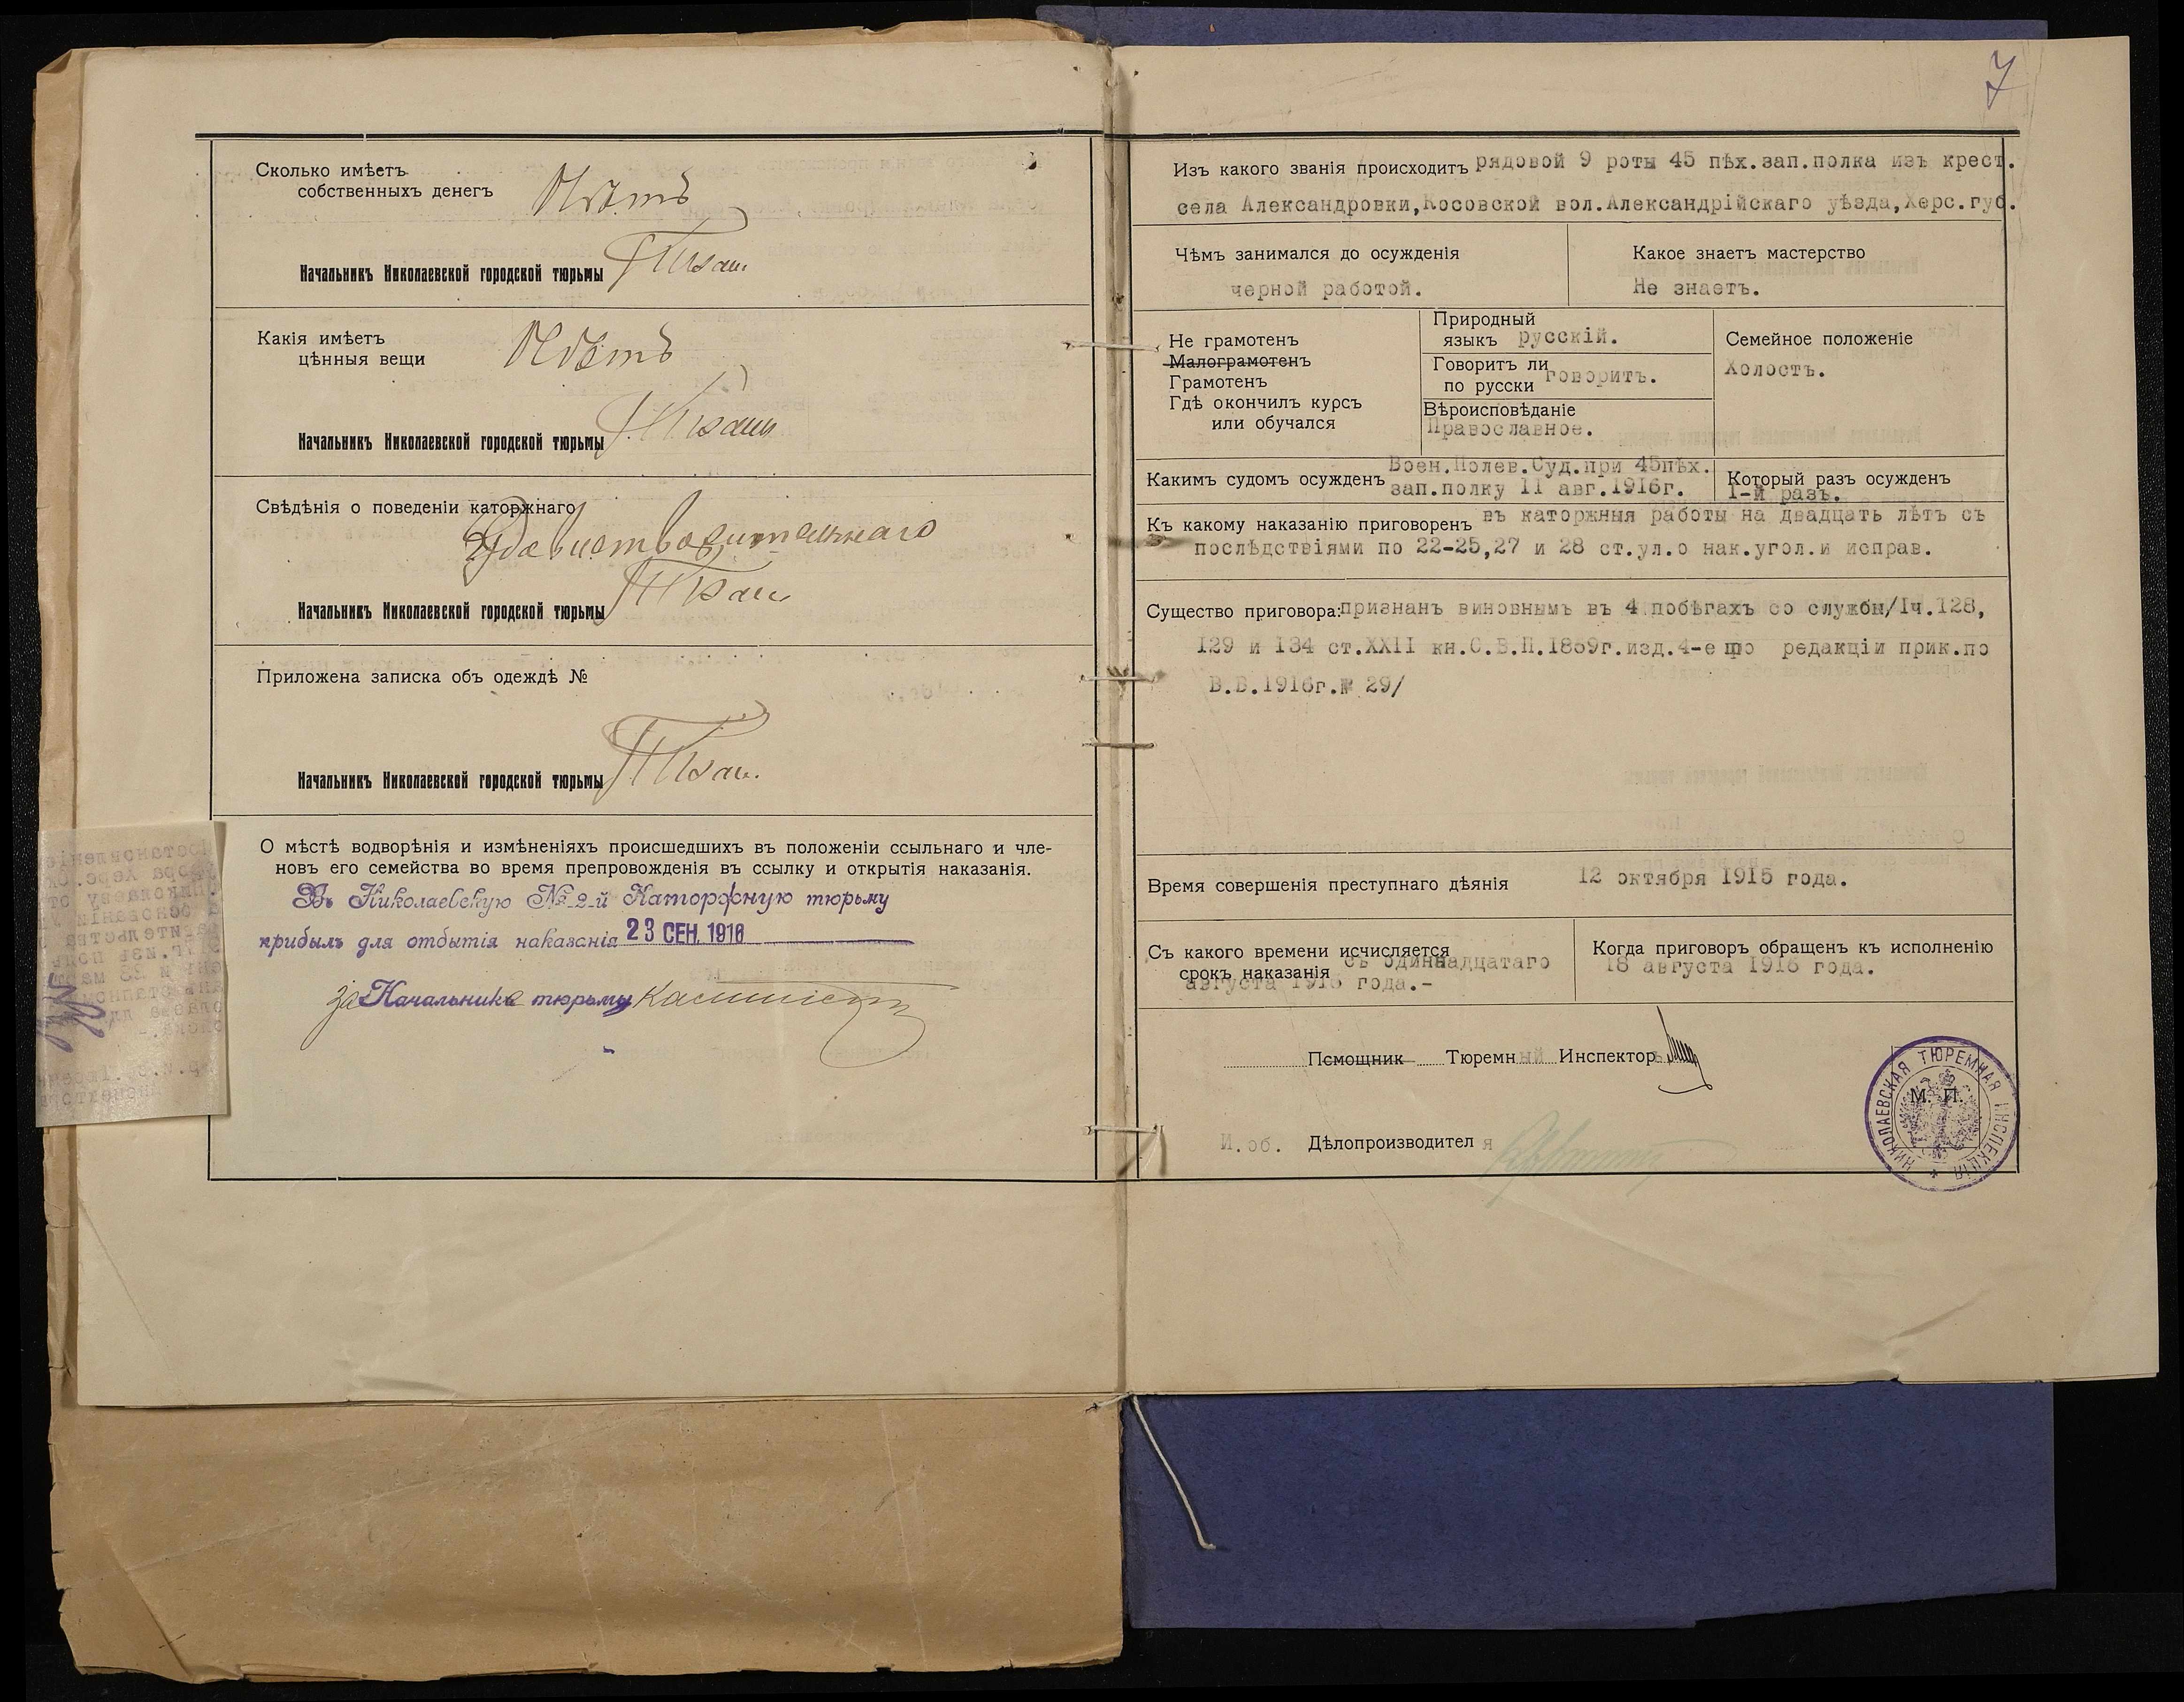 Сколько имѣетъ
собственныхъ денегъ
Нѣтъ
Начальникъ Николаевской городской тюрьмы
Какія имѣетъ
цѣнныя вещи
Нѣтъ
Начальникъ Николаевской городской тюрьмы
Свѣдѣнія о поведеніи каторжнаго
Удовлетворительнаго
Начальникъ Николаевской городской тюрьмы
Приложена записка объ одеждѣ №
Начальникъ Николаевской городской тюрьмы
О мѣстѣ водворѣнія и измѣненіяхъ происшедшихъ въ положеніи ссыльнаго и чле-
новъ его семейства во время препровожденія въ ссылку и открытія наказанія.
Въ Николаевскую № 2-й Каторжную тюрьму
прибылъ для отбытія наказанія 23 СЕН. 1916
За Начальника тюрьмы
7
Изъ какого званія происходитъ рядовой 9 роты 45 пѣх.зап.полка изъ крест.
села Александровки,Косовской вол.Александрійскаго уѣзда,Херс.губ.
Чѣмъ занимался до осужденія
черной работой.
Какое знаетъ мастерство
Не знаетъ.
Не грамотенъ
Малограмотенъ
Грамотенъ
Гдѣ окончилъ курсъ
или обучался
Природный
языкъ русскій.
Говоритъ ли
по русски говоритъ.
Вѣроисповѣданіе
Православное.
Семейное положеніе
Холостъ.
Какимъ судомъ осужденъ Воен.Полев.Суд.при 45пѣх.
зап.полку 11 авг.1916г.
Который разъ осужденъ
1-й разъ.
Къ какому наказанію приговоренъ въ каторжныя работы на двадцать лѣтъ съ
послѣдствіями по 22-25,27 и 28 ст.ул.о нак.угол.и исправ.
Существо приговора: признанъ виновнымъ въ 4 побѣгахъ со службы/1ч.128,
129 и 134 ст.XXII кн.С.В.П.1869г.изд.4-е по редакціи прик.по
В.В.1916г.№ 29/
Время совершенія преступнаго дѣянія 12 октября 1915 года.
Съ какого времени исчисляется
срокъ наказанія съ одиннадцатаго
августа 1916 года.-
Когда приговоръ обращенъ къ исполненію
18 августа 1916 года.
Помощник Тюремный Инспекторъ
М. П.
НИКОЛАЕВСКАЯ ТЮРЕМНАЯ ИНСПЕКЦІЯ
И.об. Дѣлопроизводителя